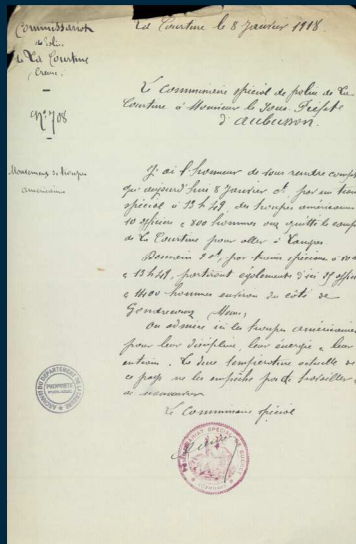 Commissariat
de Police
de La Courtine
Creuse
N° 708
La Courtine le 8 Janvier 1918
Le Commissaire spécial de police de La
Courtine à Monsieur le Sous-Préfet
d'Aubusson
Mouvements de troupes
américaines
J'ai l'honneur de vous rendre compte
que aujourd'hui 8 Janvier ct par un train
spécial à 13 h 49 des troupes américaines
10 officiers & 800 hommes ont quitté le camp
de La Courtine pour aller à Langres.
Demain 9 ct, par trains spéciaux à
& 13 h 49, partiront également d'ici 25 officiers
& 1400 hommes environ du côté de
Gondrecourt (Meuse)
On admire ici les troupes américaines
pour leur discipline, leur énergie & leur
entrain. La dure température actuelle de
ce pays ne les empêche pas de travailler &
de manœuvrer
Le Commissaire spécial
ARCHIVES DU DEPARTEMENT DE LA CREUSE
PROPRIÉTÉ
PUBLIQUE
COMMISSARIAT SPÉCIAL DE GUÉRET